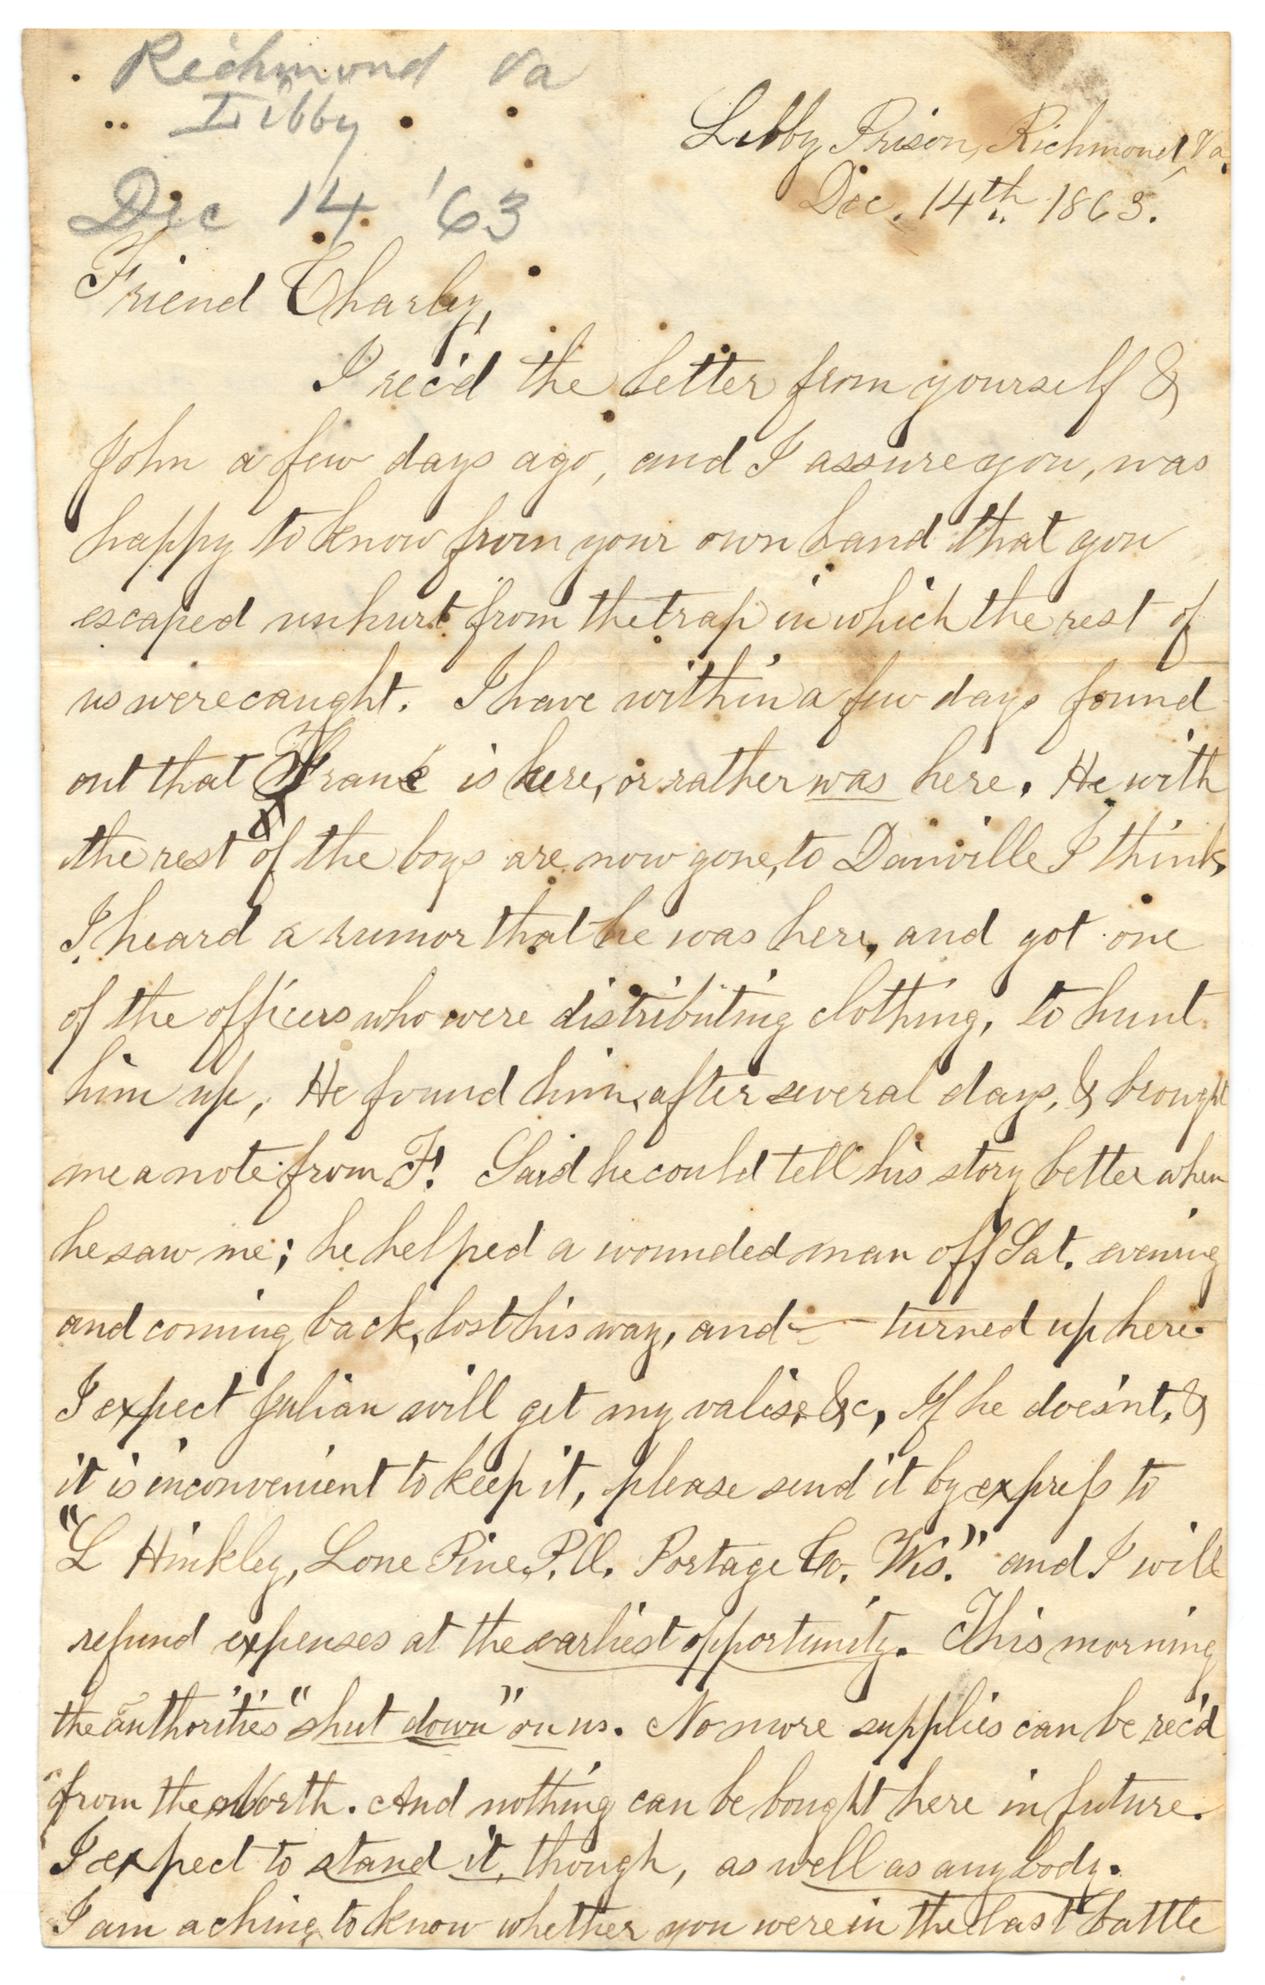 Richmond Va
Libby
Dec 14 '63
Libby Prison, Richmond, Va.
Dec. 14th 1863.
Friend Charley,
I rec'd the letter from yourself &
John a few days ago, and I assure you, was
happy to know from your own hand that you
escaped unhurt from the trap in which the rest of
us were caught. I have within a few days found
out that Frank is here, or rather was here. He with
the rest of the boys are now gone, to Danville I think,
I heard a rumor that he was here, and got one
of the officers who were distributing clothing, to hunt
him up, He found him, after several days, & brought
me a note from F! Said he could tell his story better when
he saw me; he helped a wounded man off Sat. evening
and coming back, lost his way, and — turned up here.
I expect Julian will get my valise &c, If he does'nt, &
it is inconvenient to keep it, please send it by express to
"L Hinkley, Lone Pine, P.O. Portage Co. Wis." and I will
refund expenses at the earliest opportunity. This morning
the authorities "shut down" on us. No more supplies can be rec'd
from the North. And nothing can be bought here in future.
I expect to stand it, though, as well as anybody.
I am aching to know whether you were in the last battle